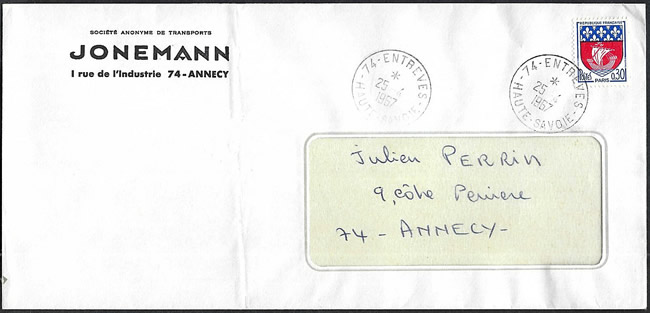 SOCIÉTÉ ANONYME DE TRANSPORTS
JONEMANN
1 rue de l'Industrie 74-ANNECY
74-ENTREVES
25
1967
HAUTE-SAVOIE
74-ENTREVES
25
1967
HAUTE-SAVOIE
REPUBLIQUE FRANÇAISE
POSTES
0,30
PARIS
Julien PERRIN
9, côte Perriere
74 - ANNECY -